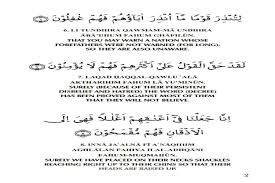 لِتُنذِرَ قَوْمًا مَّا أُنذِرَ آبَاؤُهُمْ فَهُمْ غَافِلُونَ
6. LI TUNDHIRA QAWMAM-MĀ UNDHIRA
ĀBĀ'UHUM FAHUM GHĀFILŪN,
THAT YOU MAY WARN A NATION WHOSE
FOREFATHERS WERE NOT WARNED (FOR LONG);
SO THEY ARE ALSO UNAWARE.
لَقَدْ حَقَّ الْقَوْلُ عَلَىٰ أَكْثَرِهِمْ فَهُمْ لَا يُؤْمِنُونَ
7. LAQAD ḤAQQAL-QAWLU 'ALĀ
AKTHARIHIM FAHUM LĀ YU'MINŪN.
SURELY (BECAUSE OF THEIR PERSISTENT
DISBELIEF AND HATRED) THE WORD (DECREE)
HAS BEEN PROVED AGAINST MOST OF THEM
THAT THEY WILL NOT BELIEVE.
إِنَّا جَعَلْنَا فِي أَعْنَاقِهِمْ أَغْلَالًا فَهِيَ إِلَى
الْأَذْقَانِ فَهُم مُّقْمَحُونَ
8. INNĀ JA'ALNĀ FĪ A'NĀQIHIM
AGHLĀLAN FAHIYA IL AL-ADHQĀNI
FAHUM-MUQMAḤŪN.
SURELY WE HAVE PLACED ON THEIR NECKS SHACKLES
REACHING RIGHT UP TO THEIR CHINS SO THAT THEIR
HEADS ARE RAISED UP.
2